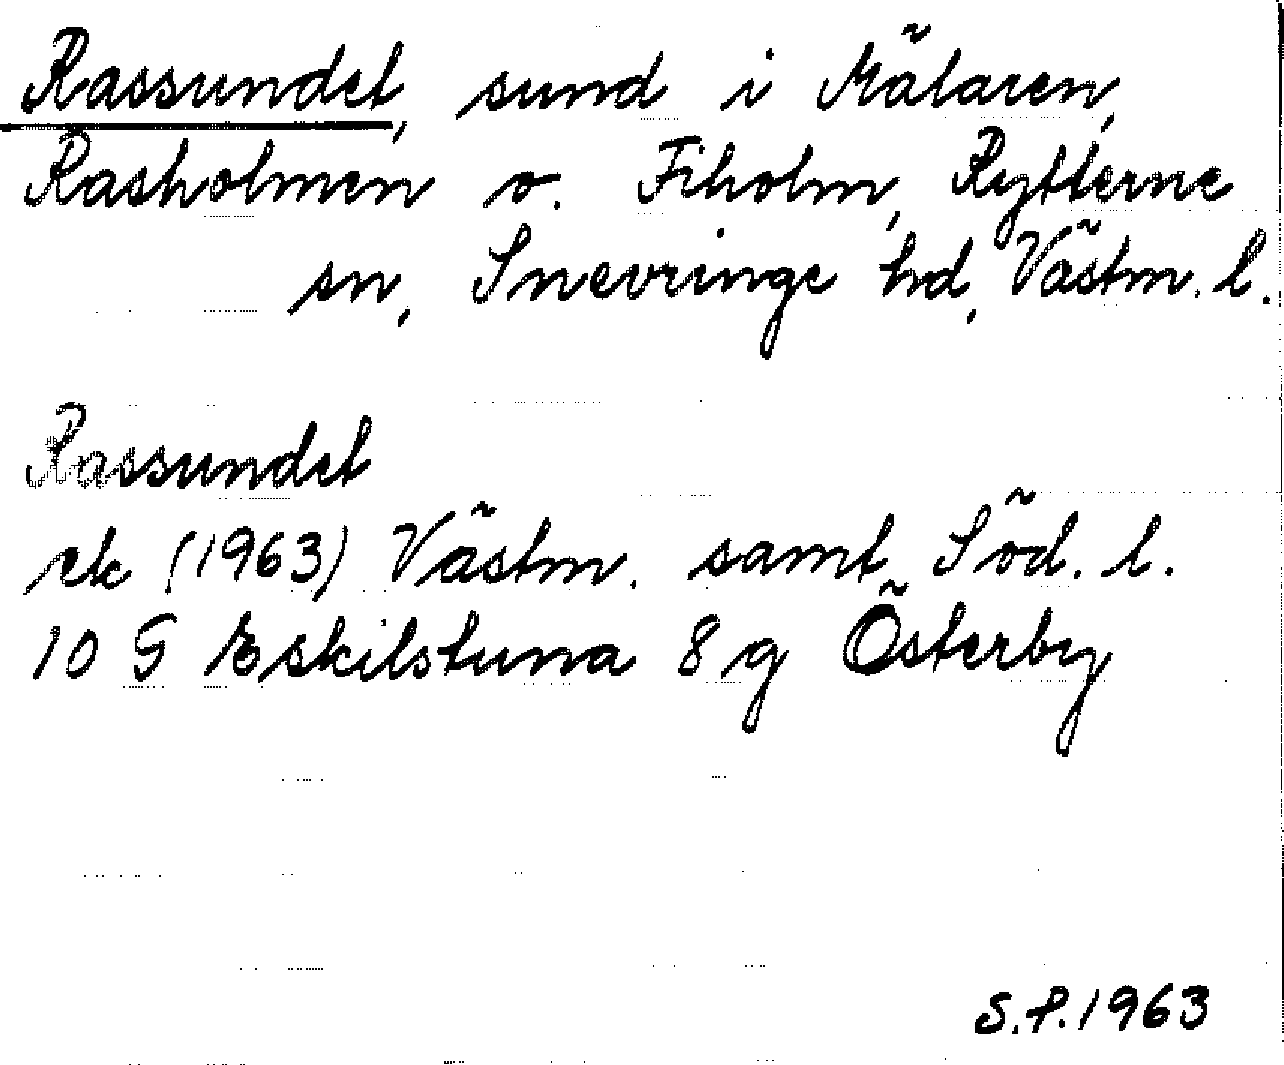 Rassundet, sund i Mälaren,
Rasholmen o. Fiholm, Rytterne
sn, Snevringe hd, Västm. l.
Rassundet
ek (1963) Västm. samt Söd. l.
10 G Eskilstuna 8 g Österby
S.P. 1963